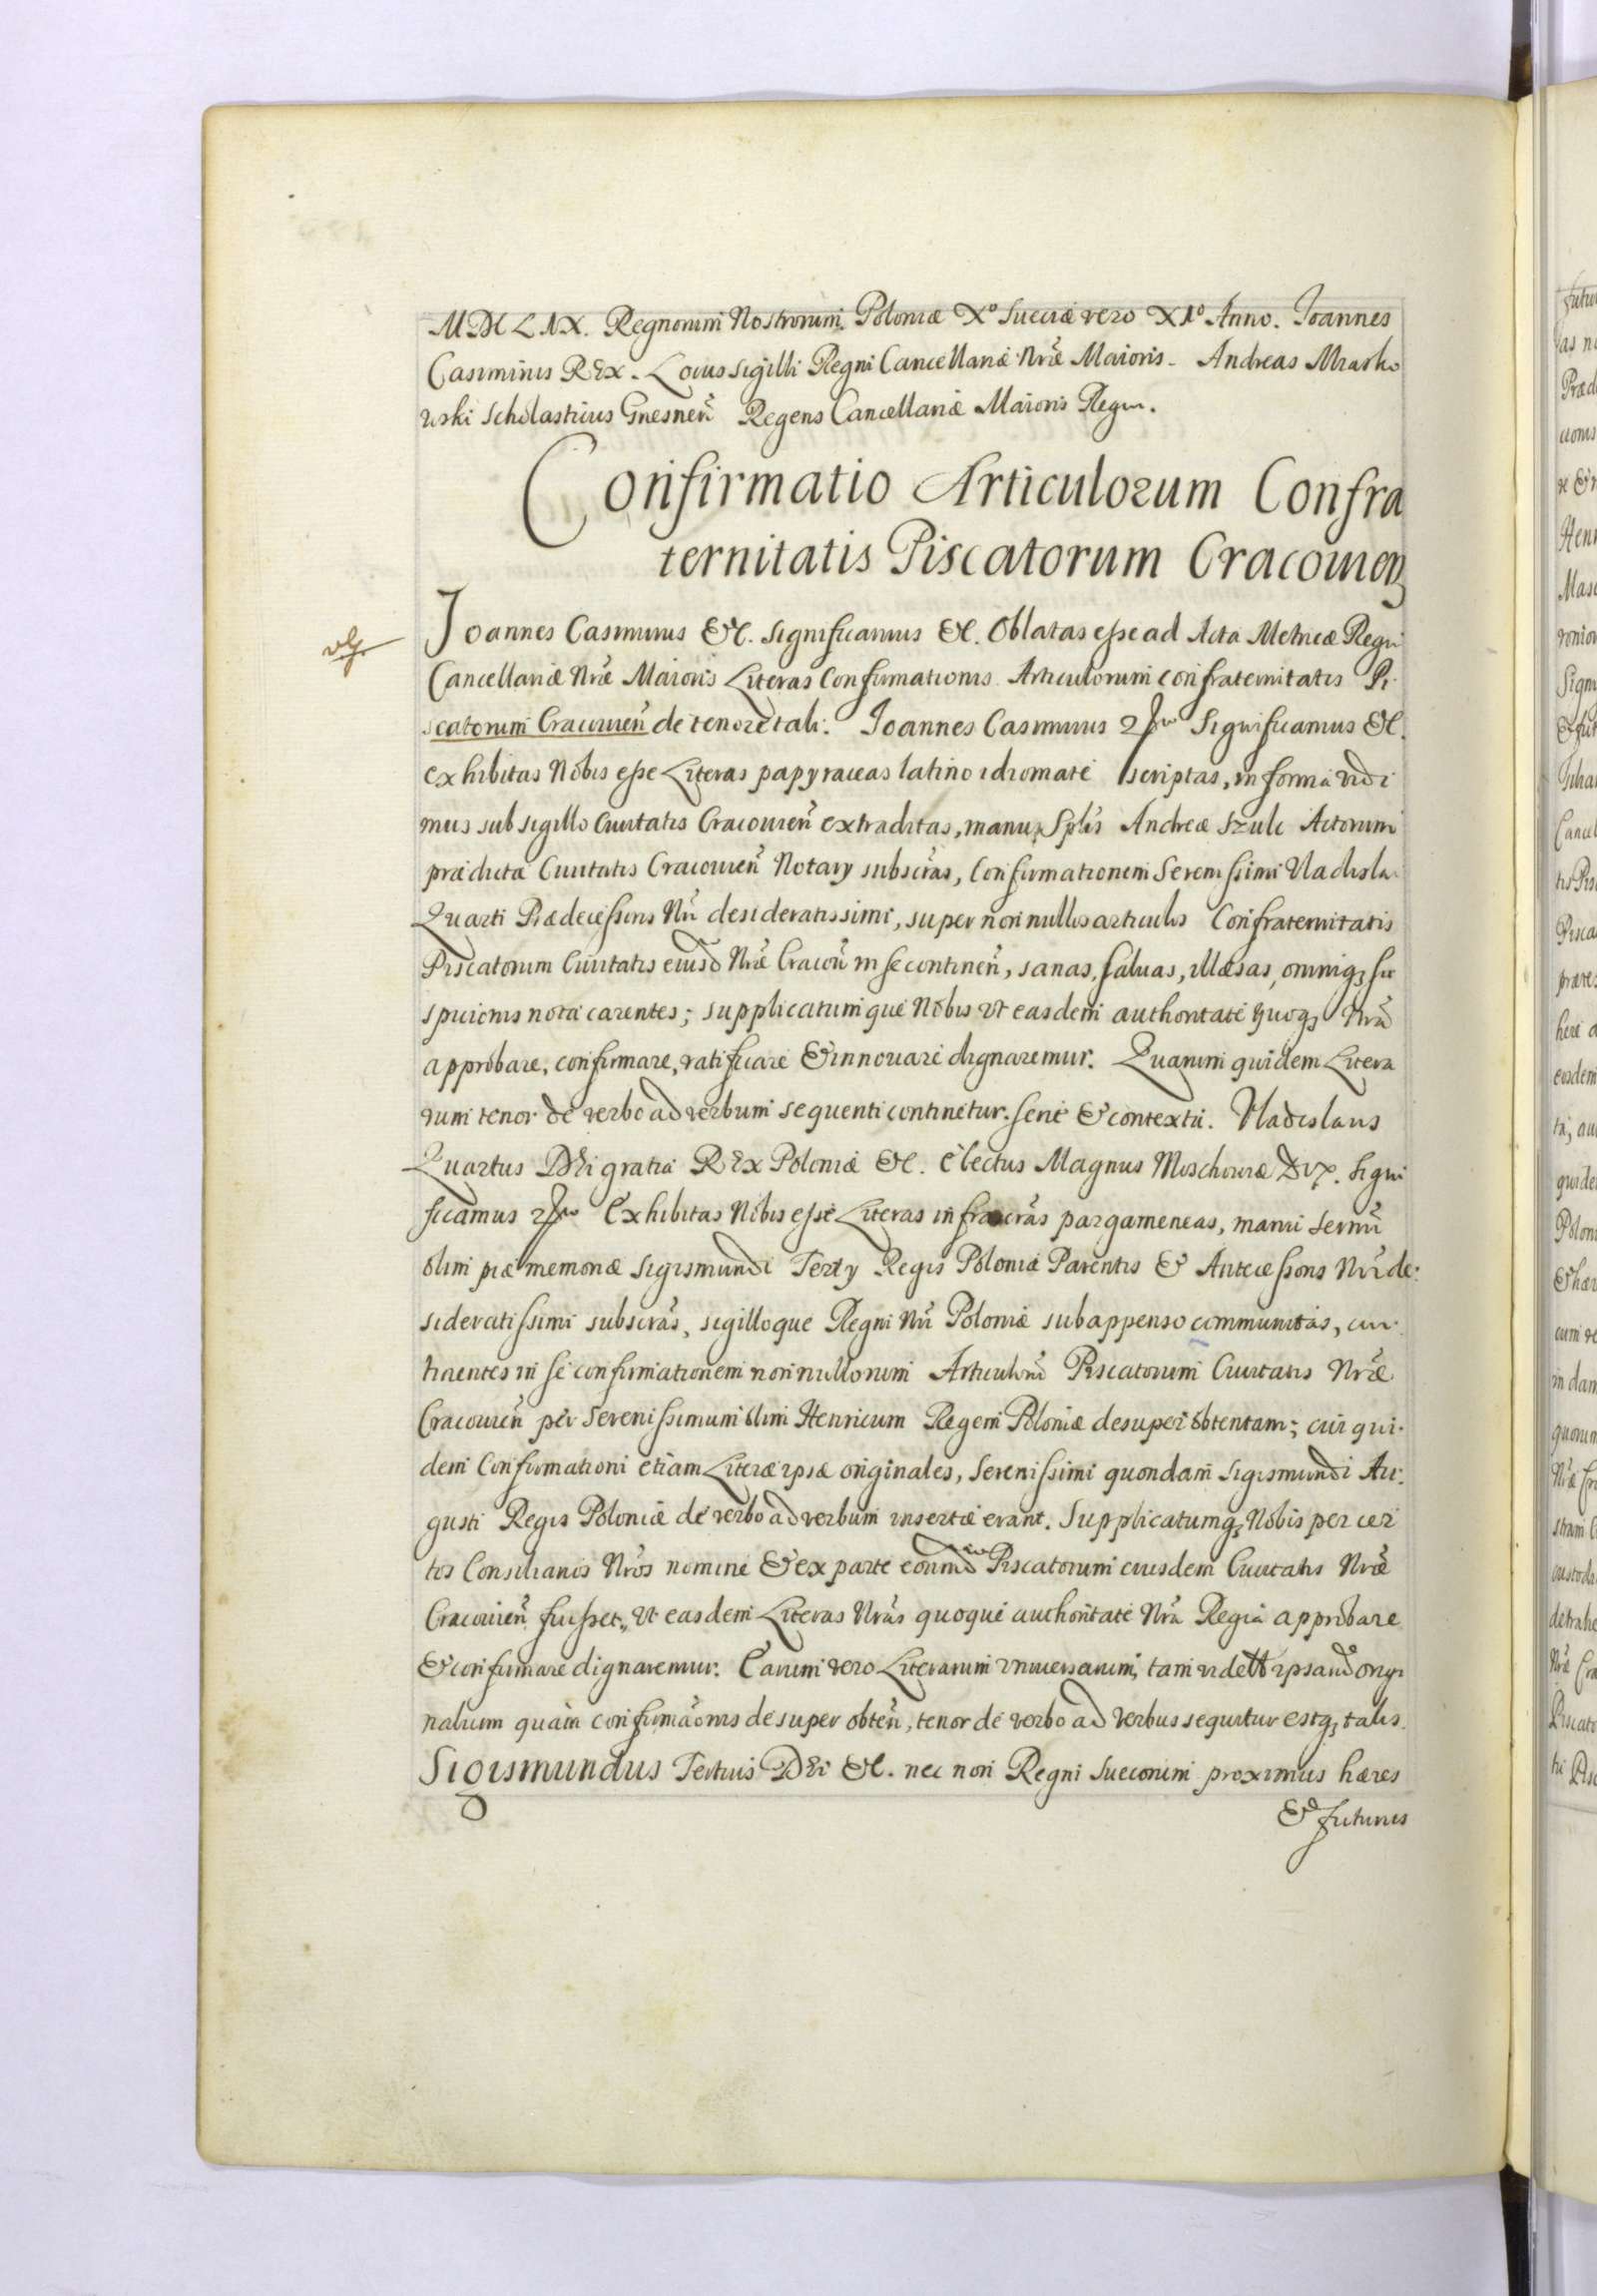 MDCLIX. Regnorum Nostrorum. Poloniæ Xº Sueciæ vero XIº Anno. Joannes
Casimirus REX. Locus sigilli Regni Cancellariæ Nræ Maioris. Andreas Miasko
wski Scholasticus Gnesnen̄ Regens Cancellariæ Maioris Regni.
Confirmatio Articulorum Confra
ternitatis Piscatorum Cracouien
Joannes Casimirus &c. Significamus &c. Oblatas esse ad Acta Metricæ Regni
Cancellariæ Nræ Maioris Literas Confirmationis Articulorum confraternitatis Pi
scatorum Cracouien̄ de tenore tali. Joannes Casimirus Significamus &c.
exhibitas Nobis esse Literas papyraceas latino idiomate scriptas, in forma vidi
mus sub sigillo Ciuitatis Cracouien̄ extraditas, manuq Spliś Andreæ Szulc Actorum
prædictæ Ciuitatis Cracouien̄ Notary subscrās, Confirmationem Serenissimi Vladislai
Quarti Prædecessoris Nrī desideratissimi, super nonnullis articulis Confraternitatis
Piscatorum Ciuitatis eiusd Nræ Cracou̅ in se continen̄, sanas, saluas, illæsas, omniq₃ su
spicionis nota carentes; supplicatumque Nobis vt easdem authoritate quoq₃ Nrā
approbare, confirmare, ratificare & innouare dignaremur. Quarum quidem Litera
rum tenor de verbo ad verbum sequenti continetur serie & contextu. Vladislaus
Quartus DEI gratia REX Poloniæ &c. Electus Magnus Moschouiæ DUX. Signi
ficamus Exhibitas Nobis esse Literas infrascrās pargameneas, manu Sermi
olim piæ memoriæ Sigismundi Terty Regis Poloniæ Parentis & Antecessoris Nrī de:
sideratissimi subscrās, sigilloque Regni Nrī Poloniæ subappenso communitas, con
tinentes in se confirmationem nonnullorum Articulorū Piscatorum Ciuitatis Nræ
Cracouien̄ per Serenissimum olim Henricum Regem Poloniæ desuper obtentam; cui qui
dem Confirmationi etiam Literæ ipsæ originales, Serenissimi quondam Sigismundi Au:
gusti Regis Poloniæ de verbo ad verbum insertæ erant. Supplicatumq₃ Nobis per cer
tos Consiliarios Nrōs nomine & ex parte eorund Piscatorum eiusdem Ciuitatis Nræ
Cracouien̄ fuisset, vt easdem Literas Nrās quoque authoritate Nrā Regia approbare
& confirmare dignaremur. Earum vero Literarum vniuersarum, tam vidett ipsarud origi
nalium quam confirmāonis desuper obten̄, tenor de verbo ad verbus sequitur estq₃ talis.
Sigismundus Tertius DEI &c. nec non Regni Suecorum proximus hæres
& futurus